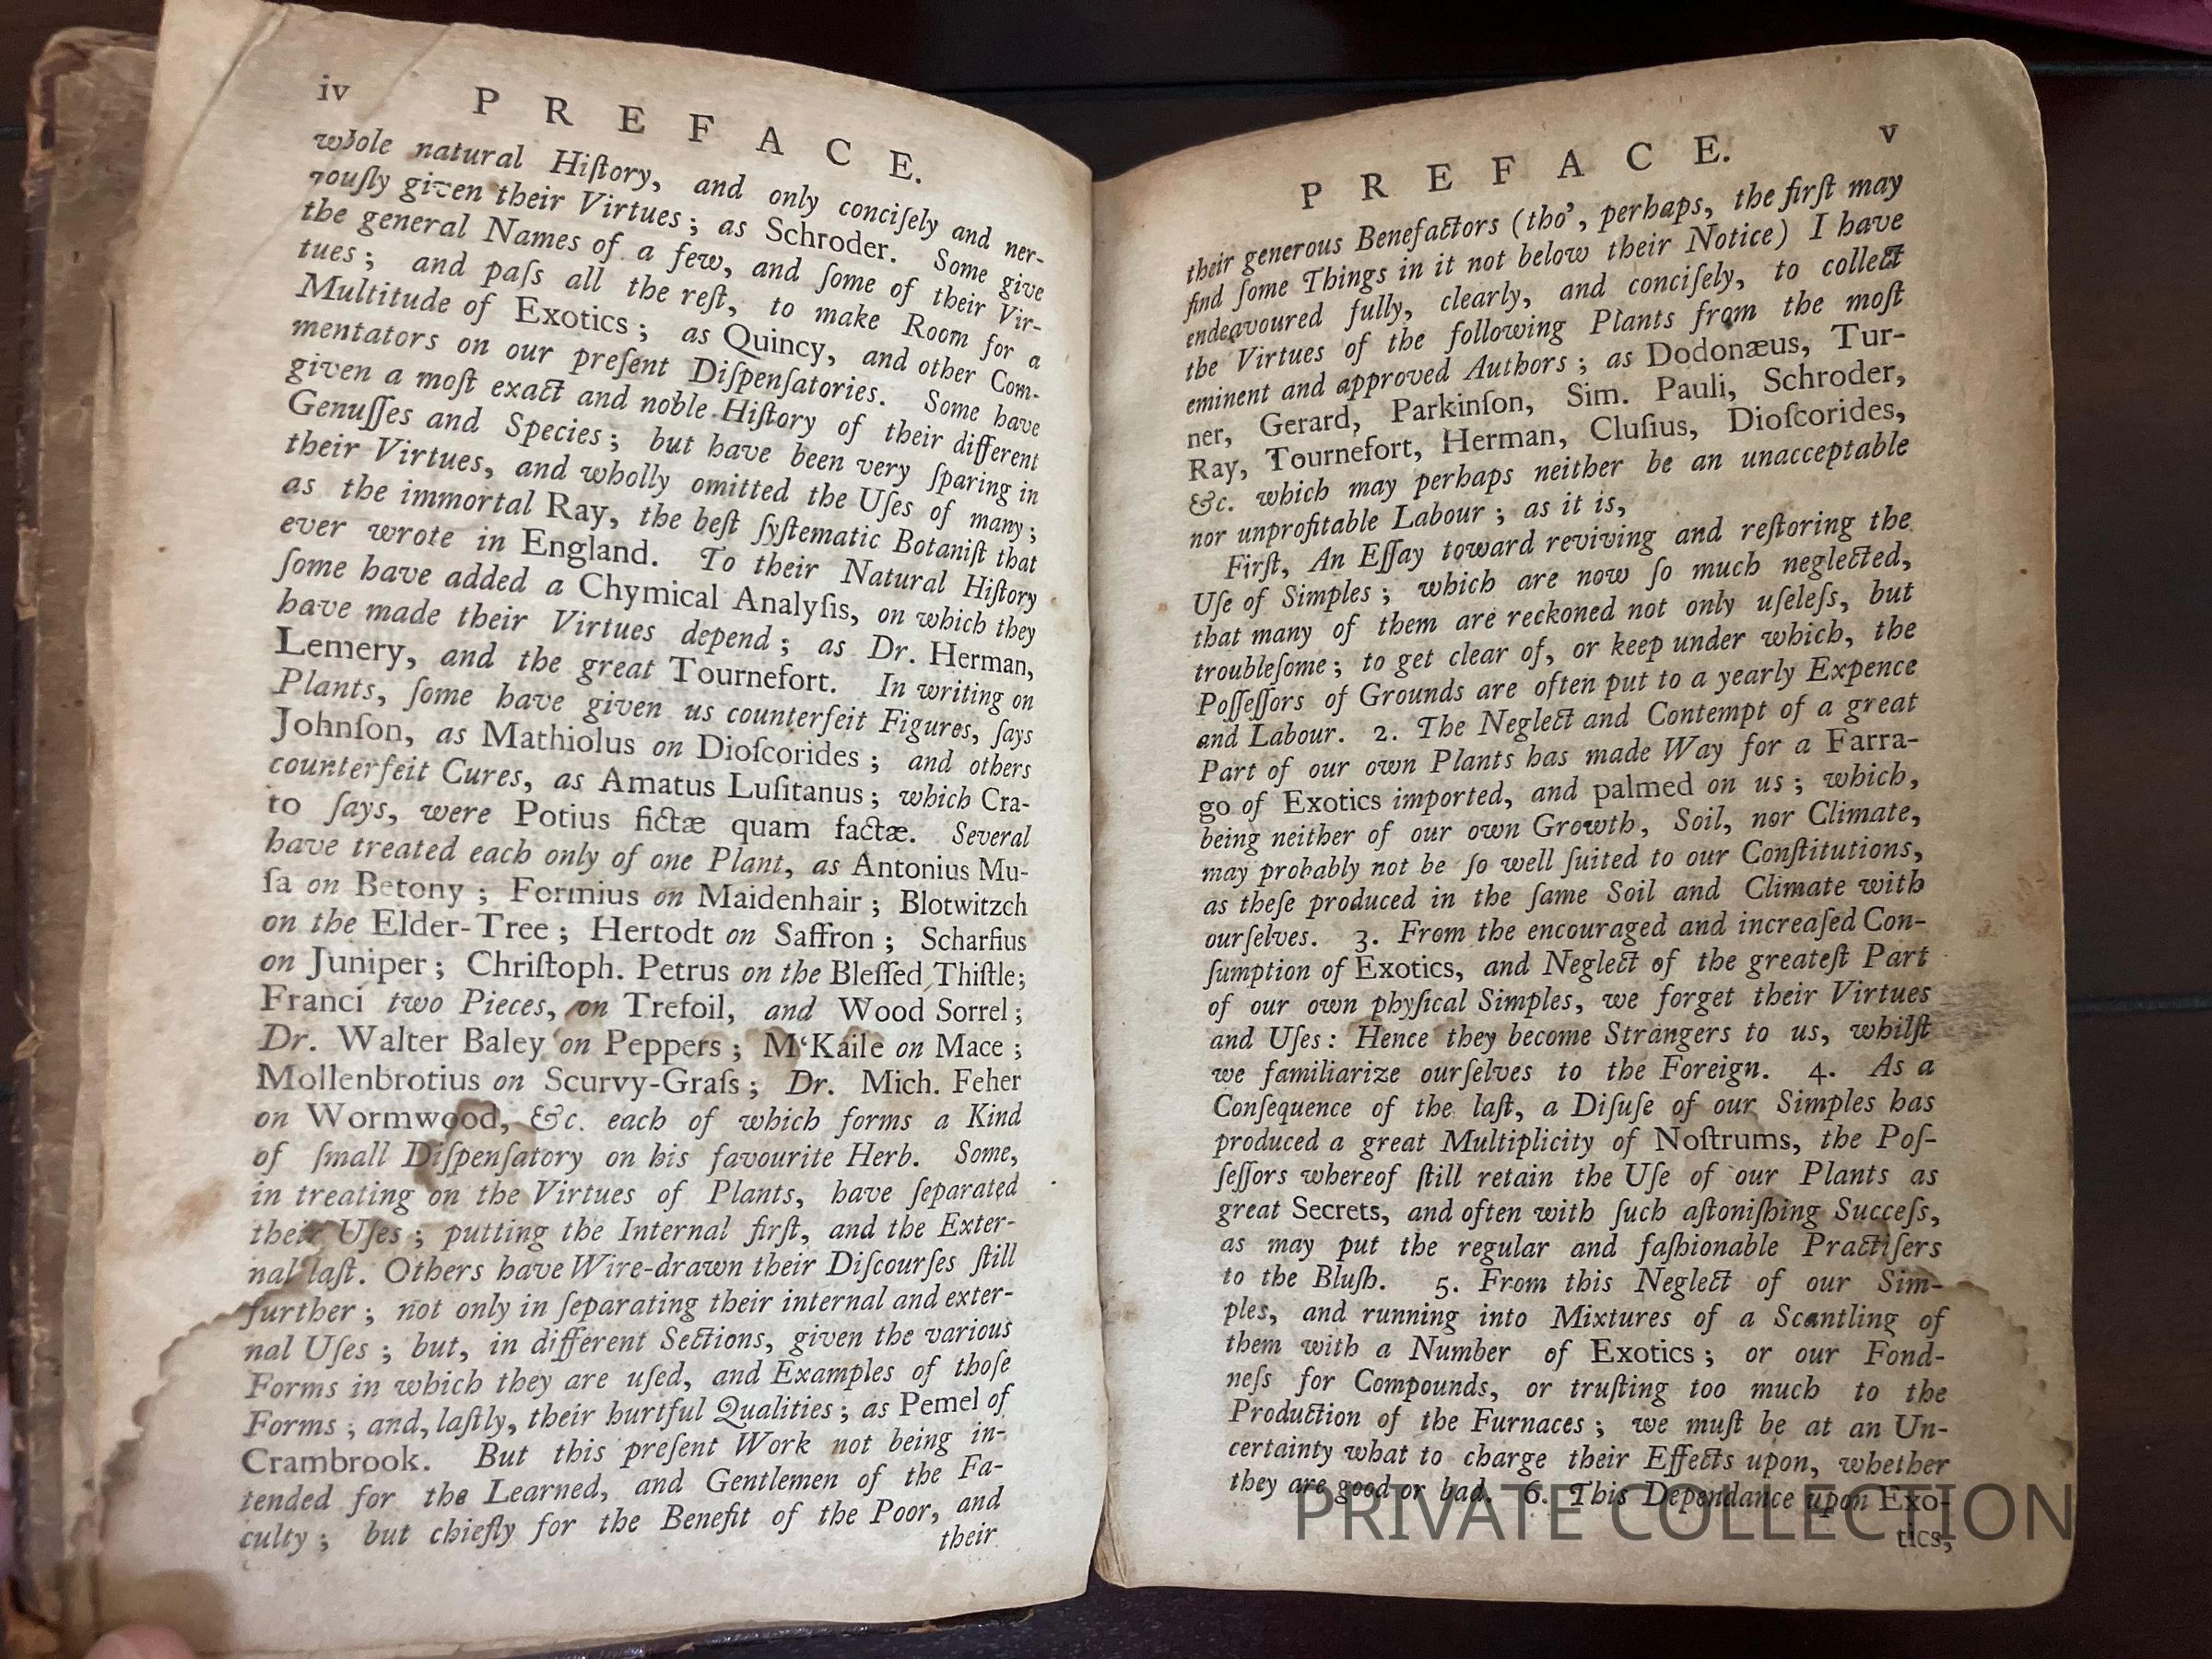 iv
PREFACE.
whole natural Hiſtory, and only conciſely and ner-
vouſly given their Virtues; as Schroder. Some give
the general Names of a few, and ſome of their Vir-
tues; and paſs all the reſt, to make Room for a
Multitude of Exotics; as Quincy, and other Com-
mentators on our preſent Diſpenſatories. Some have
given a moſt exact and noble Hiſtory of their different
Genuſſes and Species; but have been very ſparing in
their Virtues, and wholly omitted the Uſes of many;
as the immortal Ray, the beſt ſyſtematic Botaniſt that
ever wrote in England. To their Natural Hiſtory
ſome have added a Chymical Analyſis, on which they
have made their Virtues depend; as Dr. Herman,
Lemery, and the great Tournefort. In writing on
Plants, ſome have given us counterfeit Figures, ſays
Johnſon, as Mathiolus on Dioſcorides; and others
counterfeit Cures, as Amatus Luſitanus; which Cra-
to ſays, were Potius fictæ quam factæ. Several
have treated each only of one Plant, as Antonius Mu-
ſa on Betony; Formius on Maidenhair; Blotwitzch
on the Elder-Tree; Hertodt on Saffron; Scharfius
on Juniper; Chriſtoph. Petrus on the Bleſſed Thiſtle;
Franci two Pieces, on Trefoil, and Wood Sorrel;
Dr. Walter Baley on Peppers; M‘Kaile on Mace;
Mollenbrotius on Scurvy-Graſs; Dr. Mich. Feher
on Wormwood, &c. each of which forms a Kind
of ſmall Diſpenſatory on his favourite Herb. Some,
in treating on the Virtues of Plants, have ſeparated
their Uſes; putting the Internal firſt, and the Exter-
nal laſt. Others have Wire-drawn their Diſcourſes ſtill
further; not only in ſeparating their internal and exter-
nal Uſes; but, in different Sections, given the various
Forms in which they are uſed, and Examples of thoſe
Forms; and, laſtly, their hurtful Qualities; as Pemel of
Crambrook. But this preſent Work not being in-
tended for the Learned, and Gentlemen of the Fa-
culty; but chiefly for the Benefit of the Poor, and
their
PREFACE.
v
their generous Benefactors (tho’, perhaps, the firſt may
find ſome Things in it not below their Notice) I have
endeavoured fully, clearly, and conciſely, to collect
the Virtues of the following Plants from the moſt
eminent and approved Authors; as Dodonæus, Tur-
ner, Gerard, Parkinſon, Sim. Pauli, Schroder,
Ray, Tournefort, Herman, Cluſius, Dioſcorides,
&c. which may perhaps neither be an unacceptable
nor unprofitable Labour; as it is,
Firſt, An Eſſay toward reviving and reſtoring the
Uſe of Simples; which are now ſo much neglected,
that many of them are reckoned not only uſeleſs, but
troubleſome; to get clear of, or keep under which, the
Poſſeſſors of Grounds are often put to a yearly Expence
and Labour. 2. The Neglect and Contempt of a great
Part of our own Plants has made Way for a Farra-
go of Exotics imported, and palmed on us; which,
being neither of our own Growth, Soil, nor Climate,
may probably not be ſo well ſuited to our Conſtitutions,
as theſe produced in the ſame Soil and Climate with
ourſelves. 3. From the encouraged and increaſed Con-
ſumption of Exotics, and Neglect of the greateſt Part
of our own phyſical Simples, we forget their Virtues
and Uſes: Hence they become Strangers to us, whilſt
we familiarize ourſelves to the Foreign. 4. As a
Conſequence of the laſt, a Diſuſe of our Simples has
produced a great Multiplicity of Noſtrums, the Poſ-
ſeſſors whereof ſtill retain the Uſe of our Plants as
great Secrets, and often with ſuch aſtoniſhing Succeſs,
as may put the regular and faſhionable Practiſers
to the Bluſh. 5. From this Neglect of our Sim-
ples, and running into Mixtures of a Scantling of
them with a Number of Exotics; or our Fond-
neſs for Compounds, or truſting too much to the
Production of the Furnaces; we muſt be at an Un-
certainty what to charge their Effects upon, whether
they are good or bad. 6. This Dependance upon Exo-
tics,
PRIVATE COLLECTION